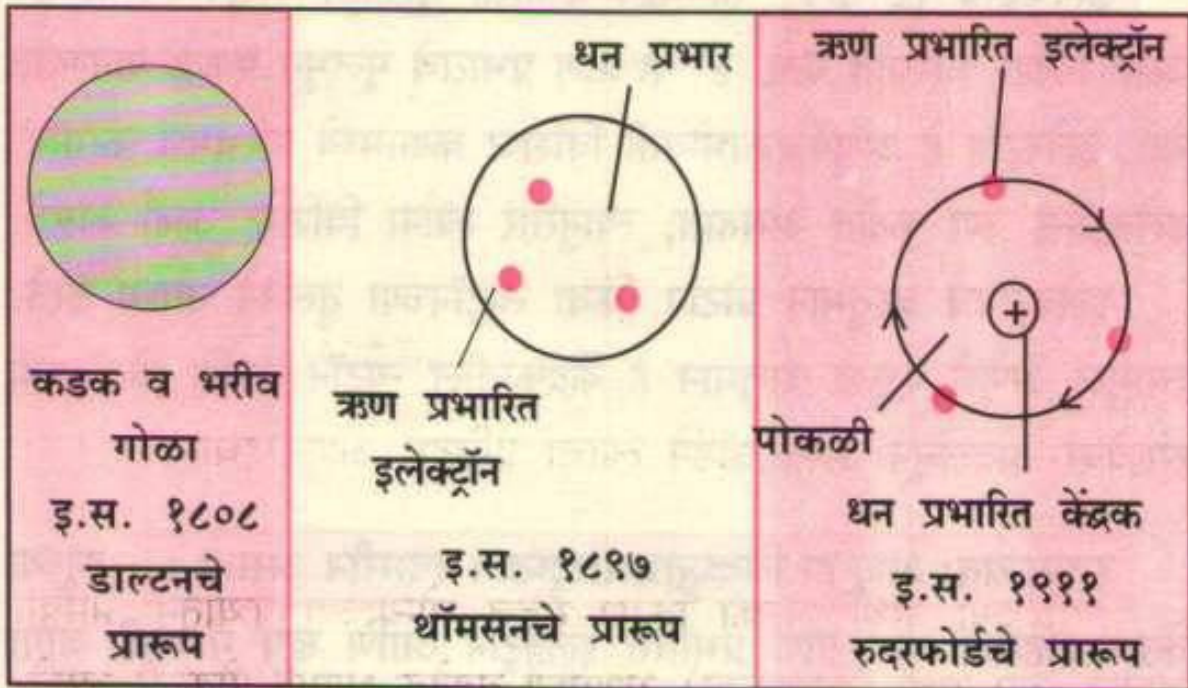 कडक व भरीव
गोळा
इ.स. १८०८
डाल्टनचे
प्रारूप
धन प्रभार
ऋण प्रभारित
इलेक्ट्रॉन
इ.स. १८९७
थॉमसनचे प्रारूप
ऋण प्रभारित इलेक्ट्रॉन
+
पोकळी
धन प्रभारित केंद्रक
इ.स. १९११
रुदरफोर्डचे प्रारूप